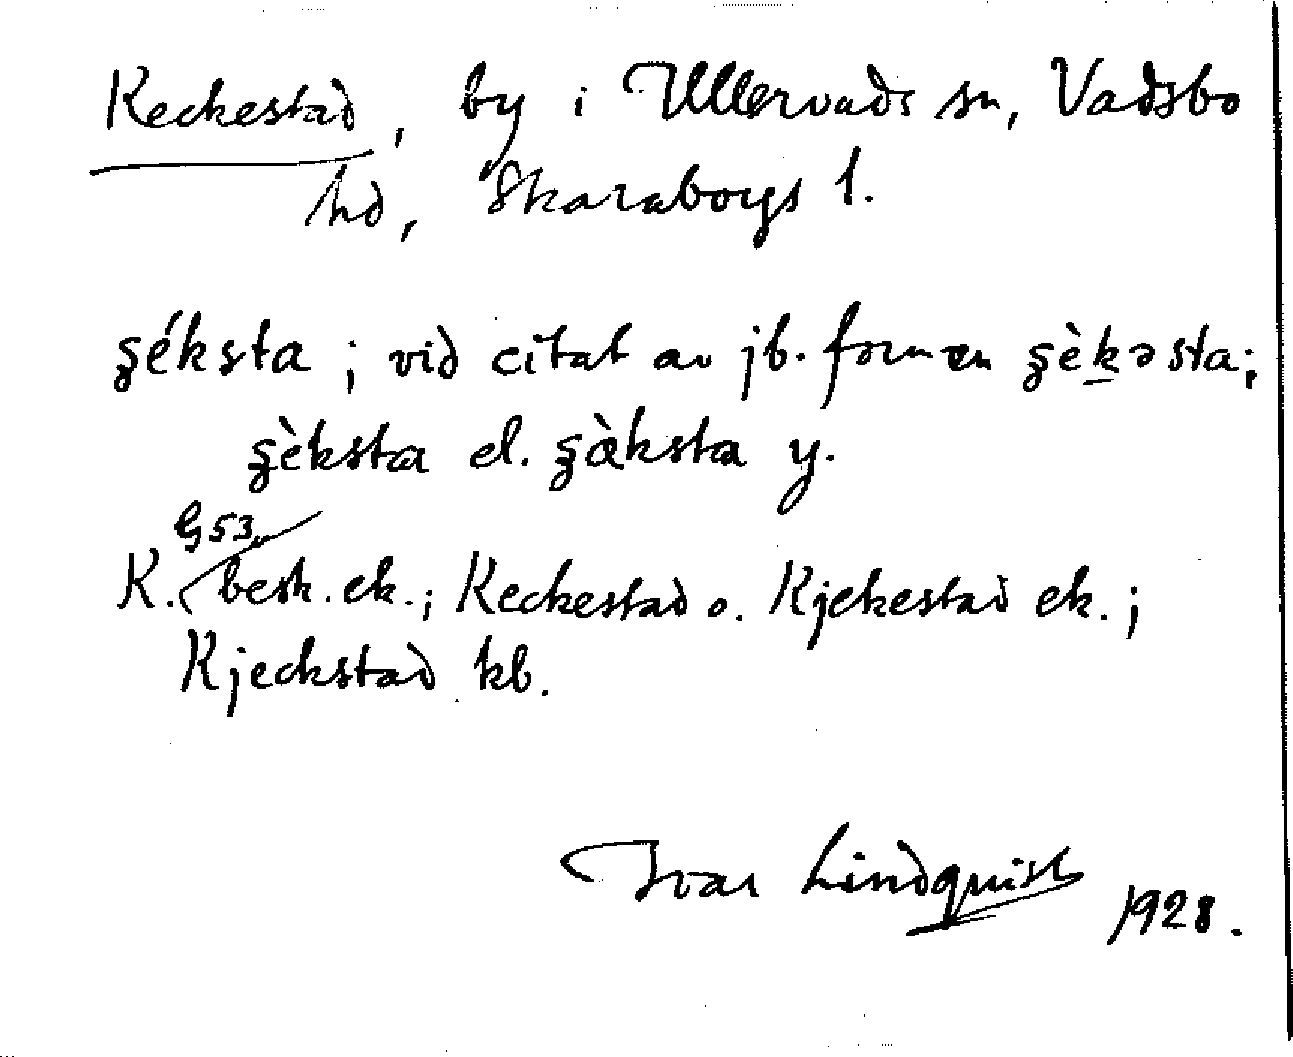 Keckestad, by i Ullervads sn, Vadsbo
hd, Skaraborgs l.
ʂéksta; vid citat av jb. formen ʂèkəsta;
ʂèksta el. ʂæ̀ksta y.
G 53
K. besk. ek.; Keckestad o. Kjekestad ek.;
Kjeckstad kb.
Ivar Lindquist 1928.